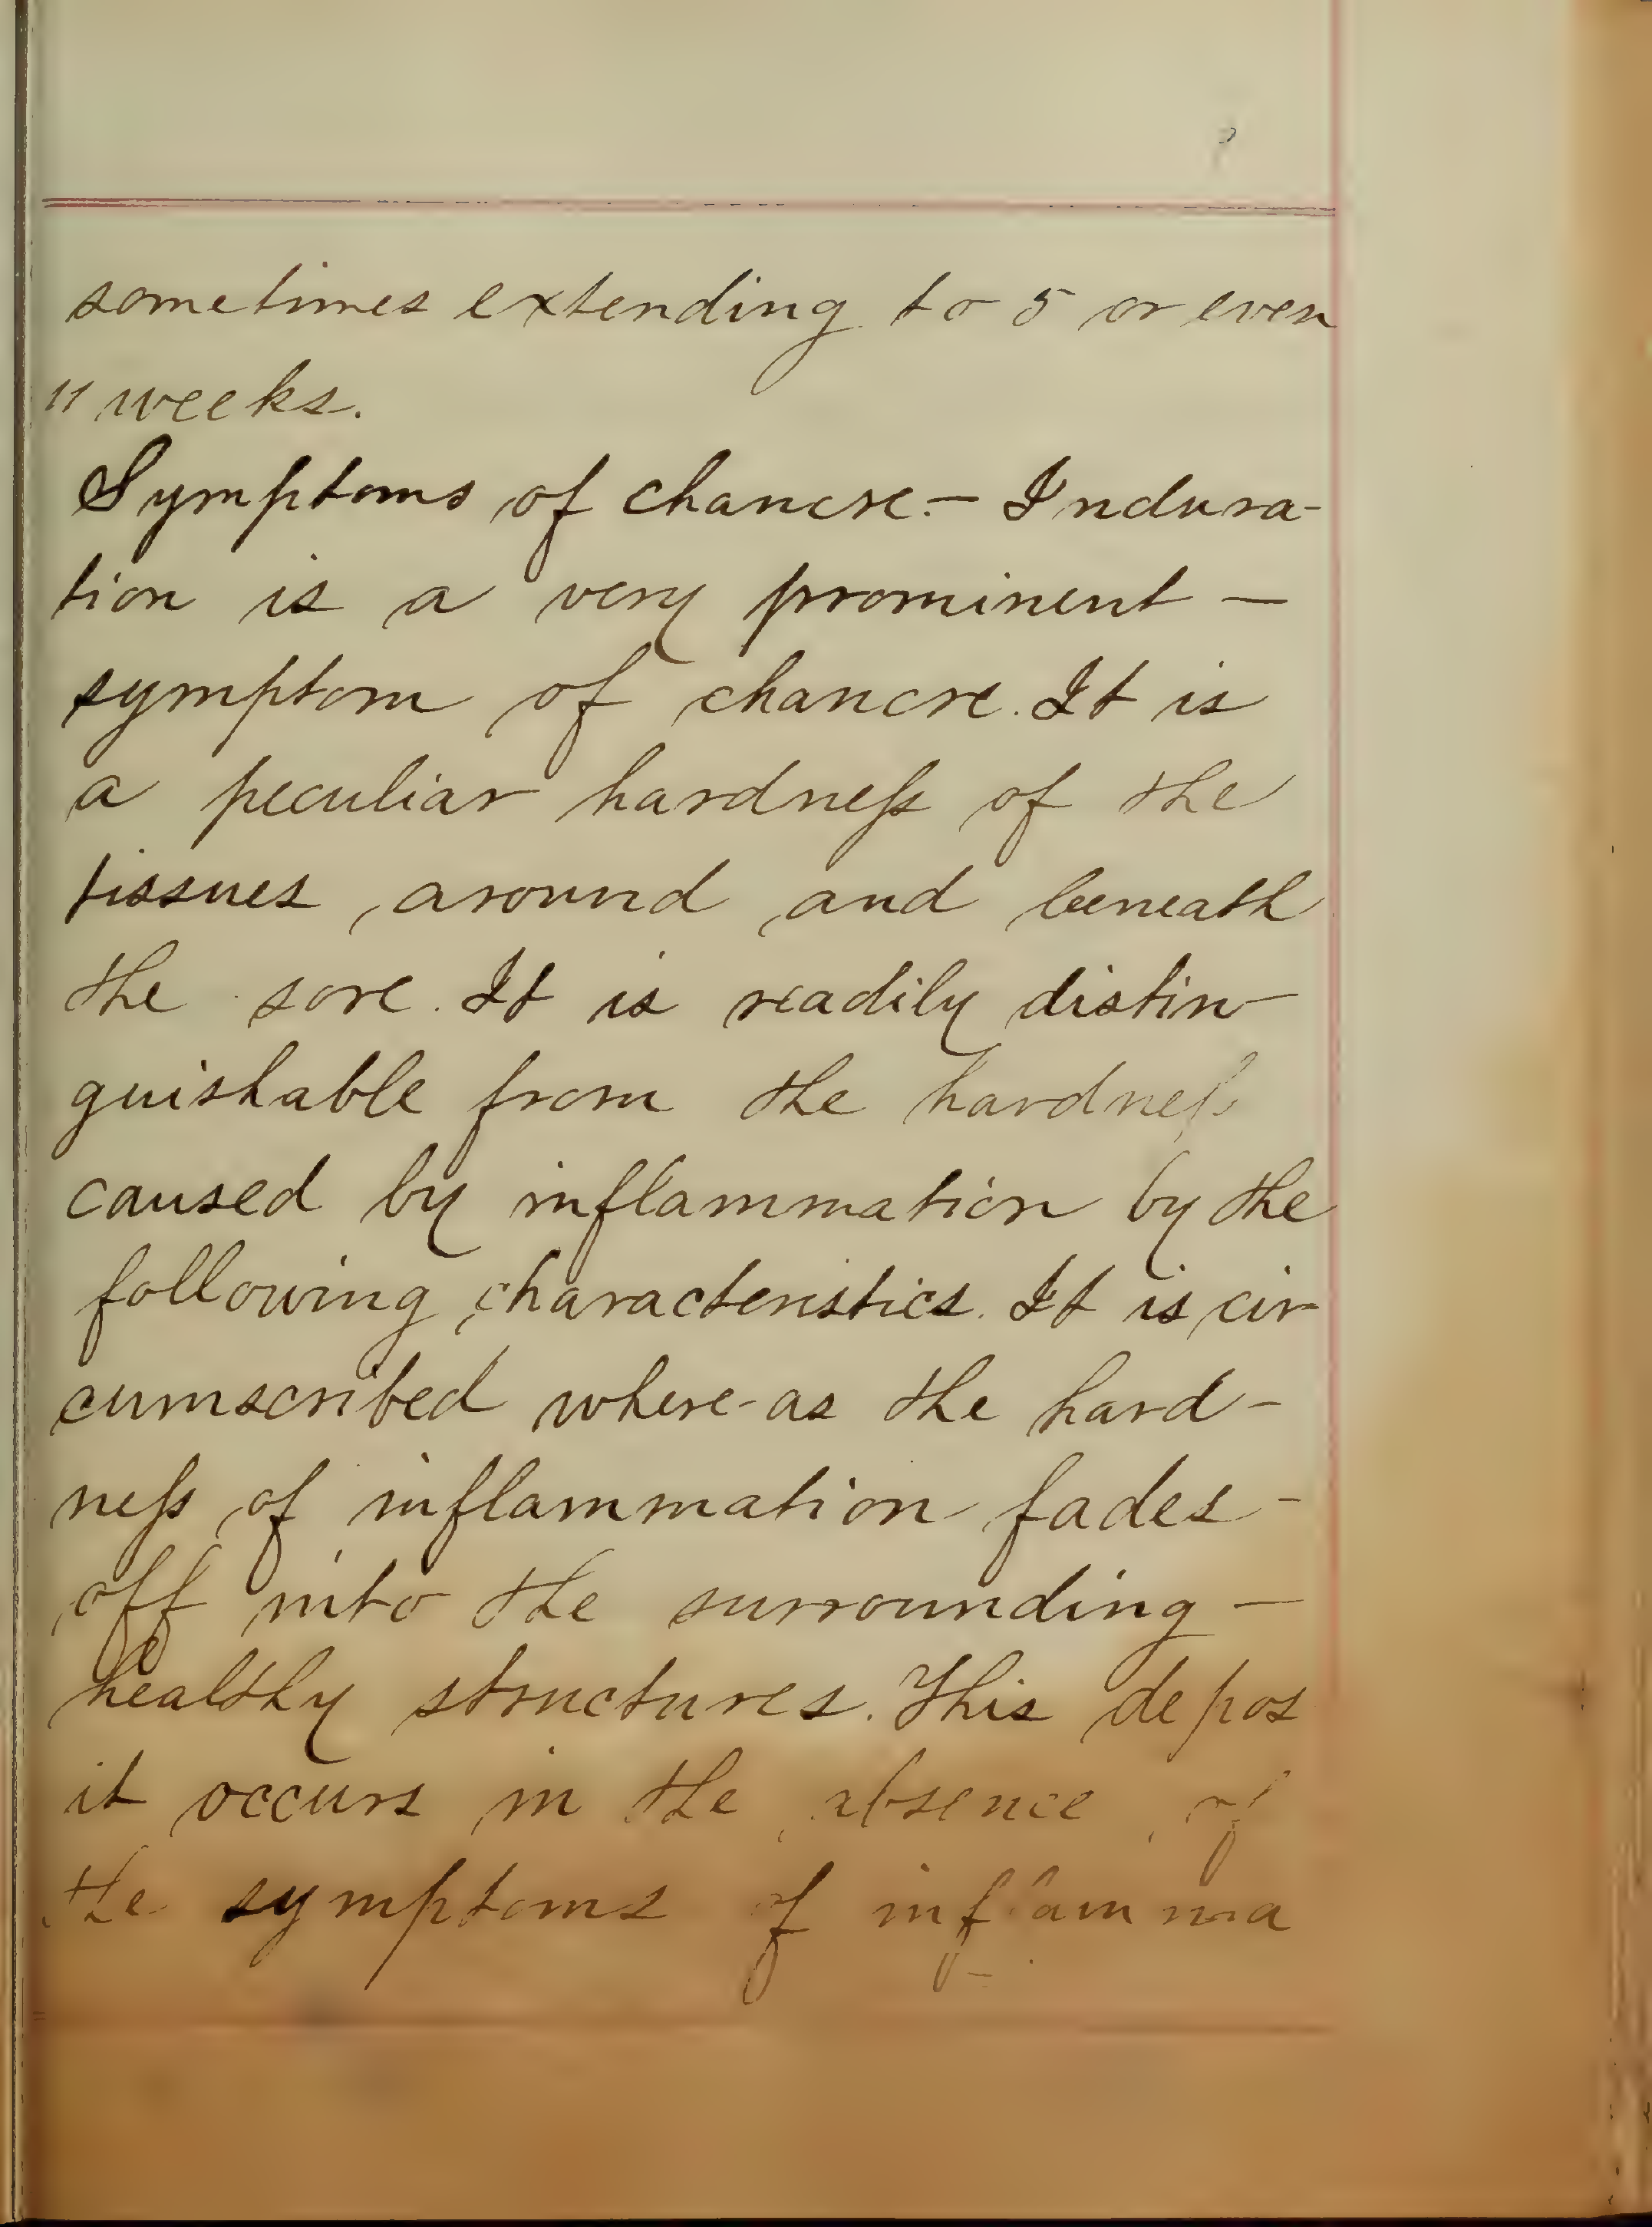 sometimes extending to 5 or even
11 weeks.
Symptoms of chancre.— Indura-
tion is a very prominent —
symptom of chancre. It is
a peculiar hardneſs of the
tissues around and beneath
the sore. It is readily distin-
guishable from the hardneſs
caused by inflammation by the
following characteristics. It is cir-
cumscribed where-as the hard-
neſs of inflammation fades -
off into the surrounding —
healthy structures. This depos
it occurs in the absence of
the symptoms of inflamma